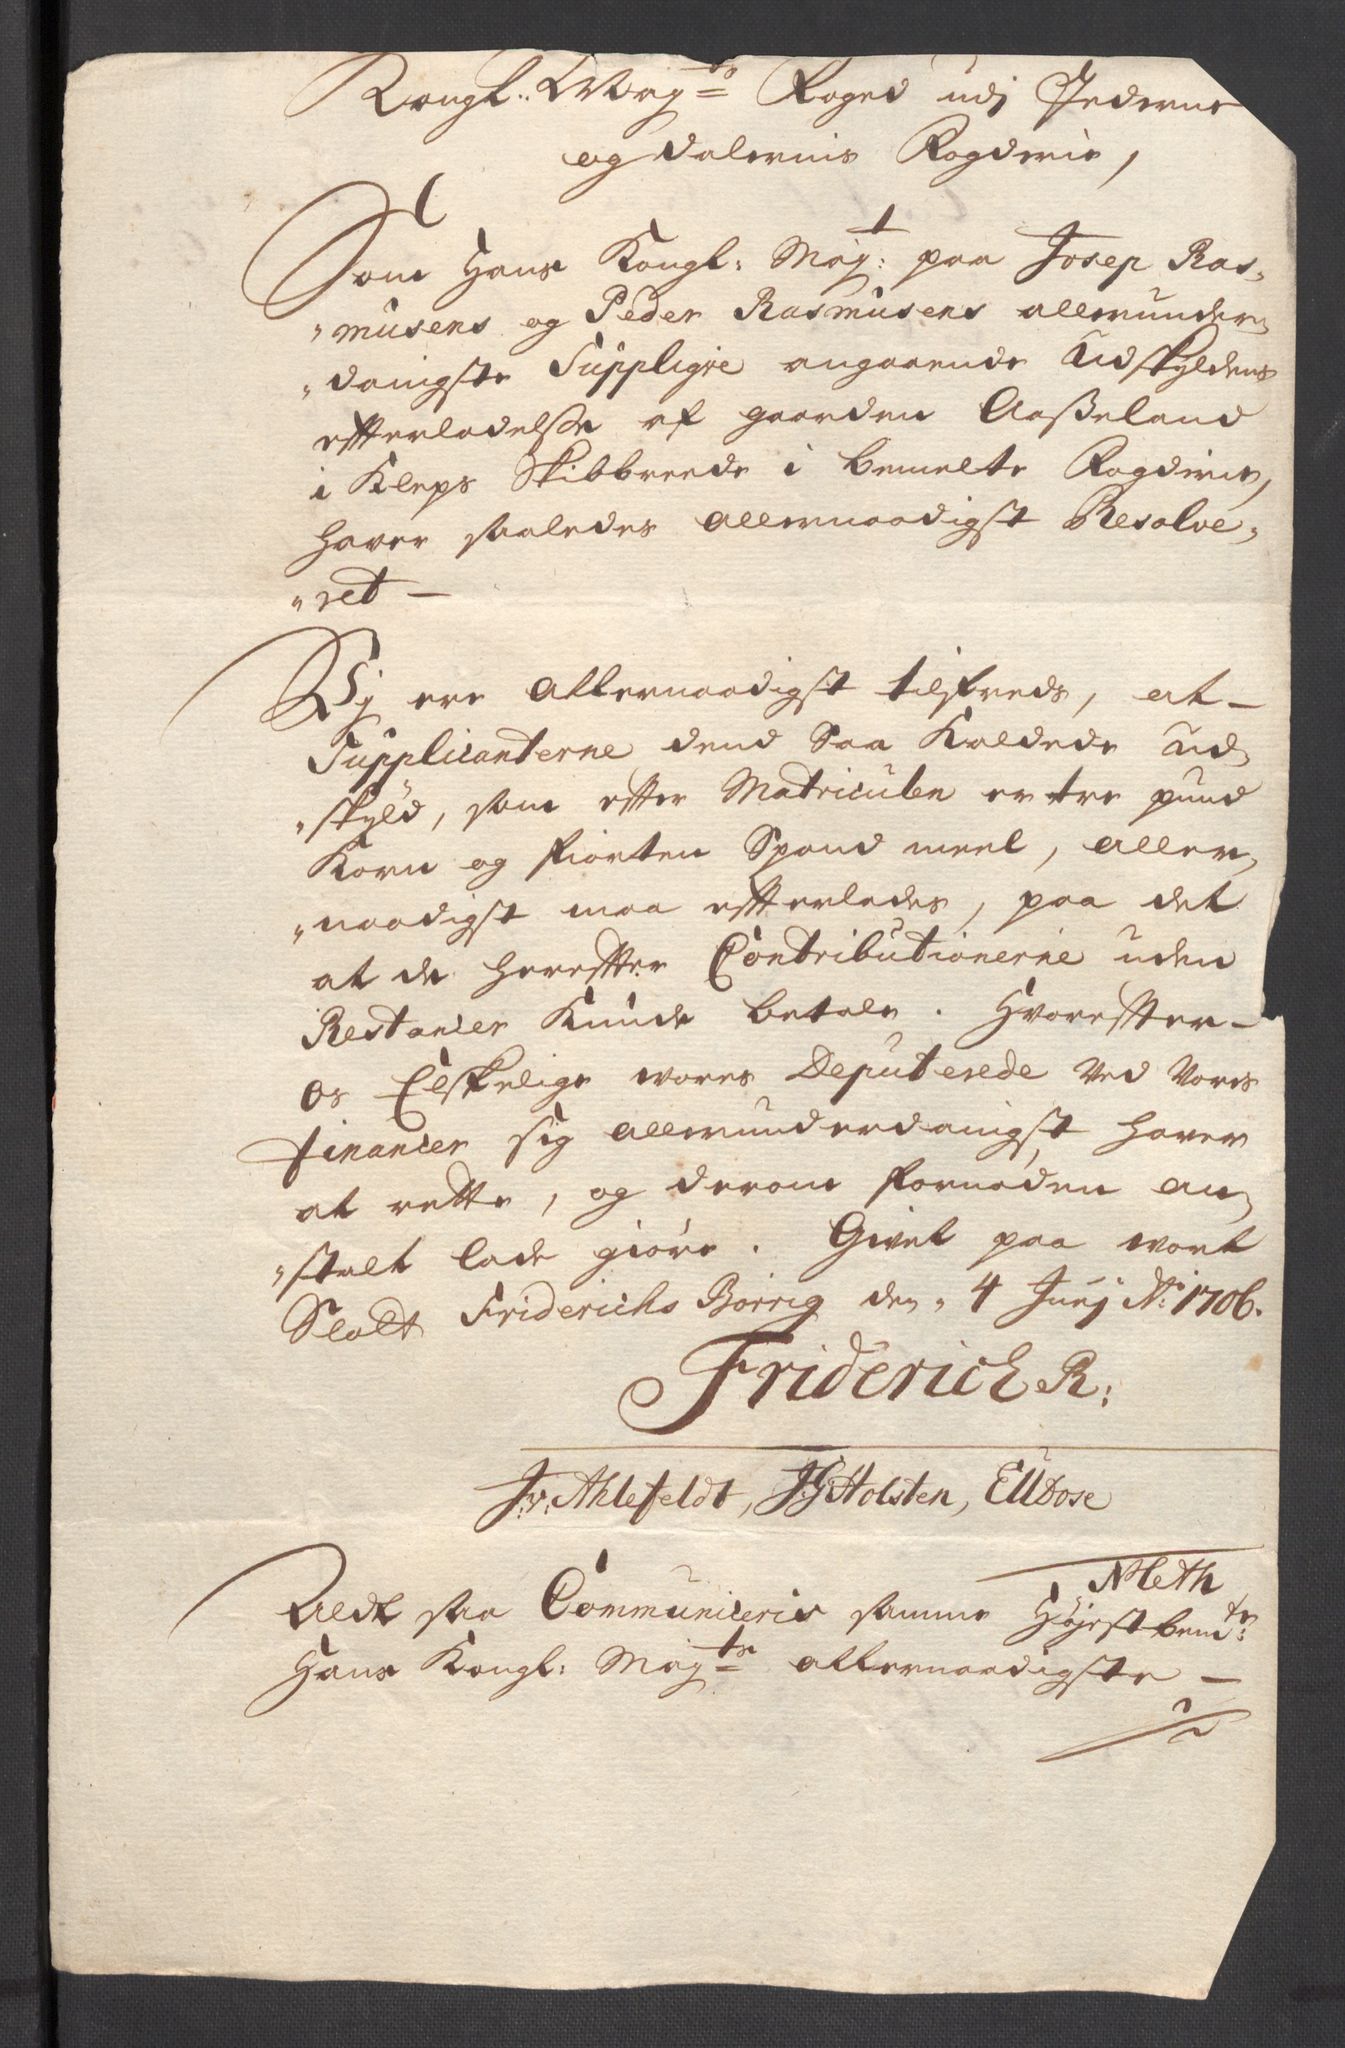 Kongl: Mayts Foged udj Jederens
og dalernis Fogderie,
Som Hans Kongl: Mayt: paa Josep Ras-
"musens og Peder Rasmusens allerunder-
"danigste Suppliqve angaaende Udskyldens
efterladelse af gaarden Aaßeland
i Kleps Skibbreede i bemelte Fogderie,
hafver saaledes allernaadigst Resolve-
"ret -
Vj ere allernaadigst tilfreds, at -
Supplicanterne dend saa kaldede Ud-
"skyld, som efter Matriculen er tre pund
Korn og fiorten Spand meel, aller-
"naadigst maa efterlades, paa det
at de herefter Contributionerne uden
Restancer kunde betale. Hvorefter -
os Elskelige vores Deputerede ved Vores
Financer sig allerunderdanigst hafver
at rette, og derom fornøden an-
"stalt lade giøre. Givet paa vort
Slolt Friderichs Borrig den 4 Junj Ao: 1706.
Friderich R:
J:v: Ahlefeldt, JGHolsten, CUDose
NMeth
Aldt saa Communiceris samme Høyestbemte:
Hans Kongl: Mayts allernaadigste -